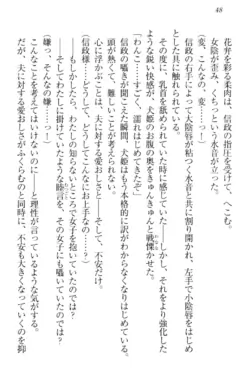 48
花弁を彩る柔肉は、信政の指圧を受け、へこむ。
女陰が歪み、くちっという水音が立った。
（変、こんなの、変……っ！）
信政の右手によって大陰唇が粘つく水音と共に割り開かれ、左手で小陰唇が
具に触れられている。
そのため、乳首を舐められていた時に感じていた
鋭い快感が、犬姫のお腹の奥をきゅんきゅんと戦慄かせた。
「わんこ……すごく、濡れはじめてきたぞ」
信政の囁きが聞こえた瞬間、犬姫はもう本格的に訳がわからなくなりはじめている。
頭が熱くて、ぼんやりする。
心に浮かぶのは、夫に対する愛おしさと、そして、不安だけ。
（信政様……どうして、こんなにお上手なの……）
もしかして、他の女子を抱いていたのでは？
もしかして、わたしに掛けていたような睦言を、その女子にも囁いていたのでは？
（嫌っ、そんなの嫌……っ！）
こんなことを考えてはいけないのに――と理性が言っているような気がする。
だが、夫に対する愛おしさがふくらむのと同時に、不安も大きくなっていくのを抑